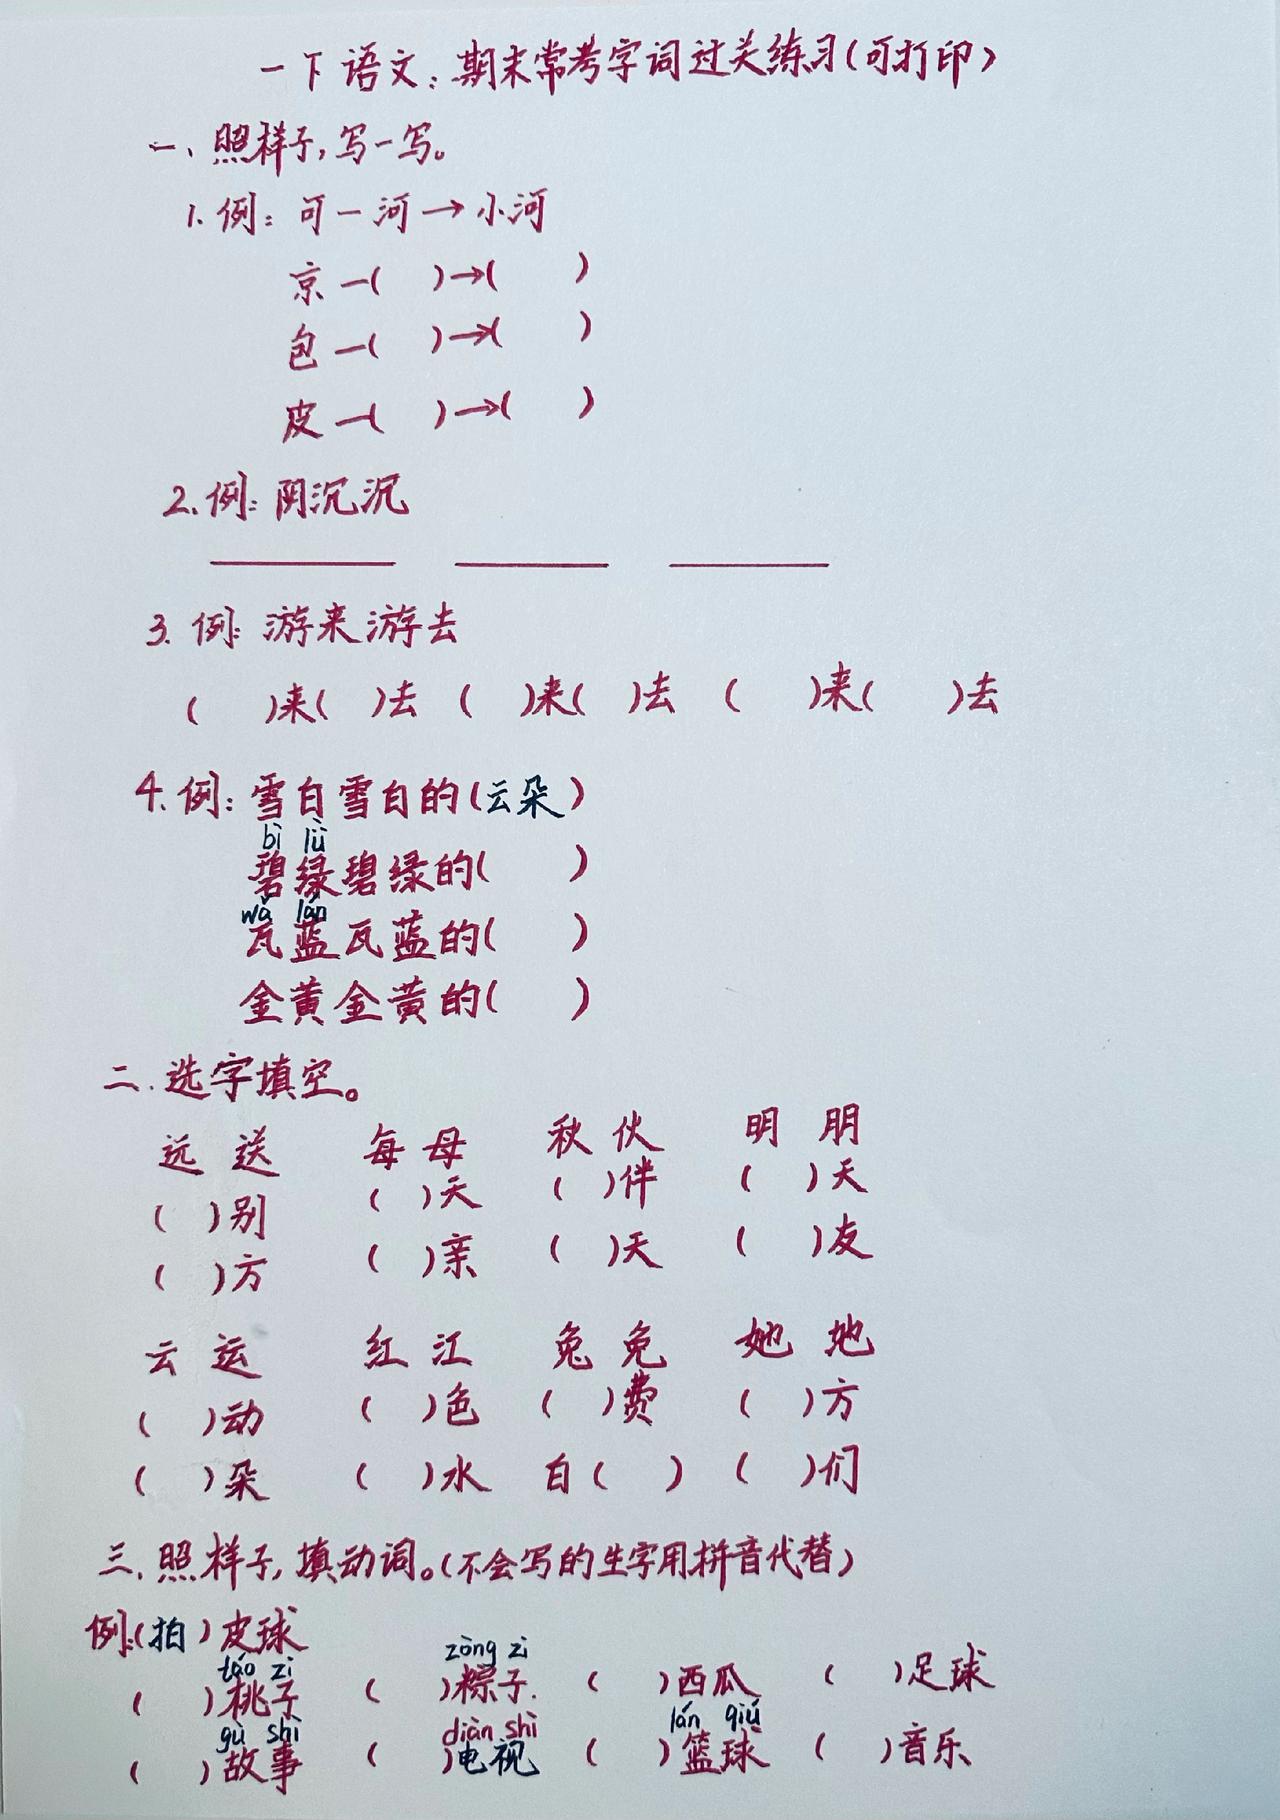 一下语文：期末常考字词过关练习(可打印)
一、照样子，写一写。
1. 例：可—河→小河
京—(    )→(    )
包—(    )→(    )
皮—(    )→(    )
2. 例：阴沉沉
________ ________ ________
3. 例：游来游去
(    )来(    )去 (    )来(    )去 (    )来(    )去
4. 例：雪白雪白的(云朵)
bì lǜ
碧绿碧绿的(    )
wǎ lán
瓦蓝瓦蓝的(    )
金黄金黄的(    )
二、选字填空。
远 送 每 母 秋 伙 明 朋
(    )别 (    )天 (    )伴 (    )天
(    )方 (    )亲 (    )天 (    )友
云 运 红 江 兔 免 她 地
(    )动 (    )色 (    )费 (    )方
(    )朵 (    )水 白(    ) (    )们
三、照样子，填动词。(不会写的生字用拼音代替)
例：(拍)皮球
táo zi zòng zi
(    )桃子 (    )粽子. (    )西瓜 (    )足球
gù shì diàn shì lán qiú
(    )故事 (    )电视 (    )篮球 (    )音乐